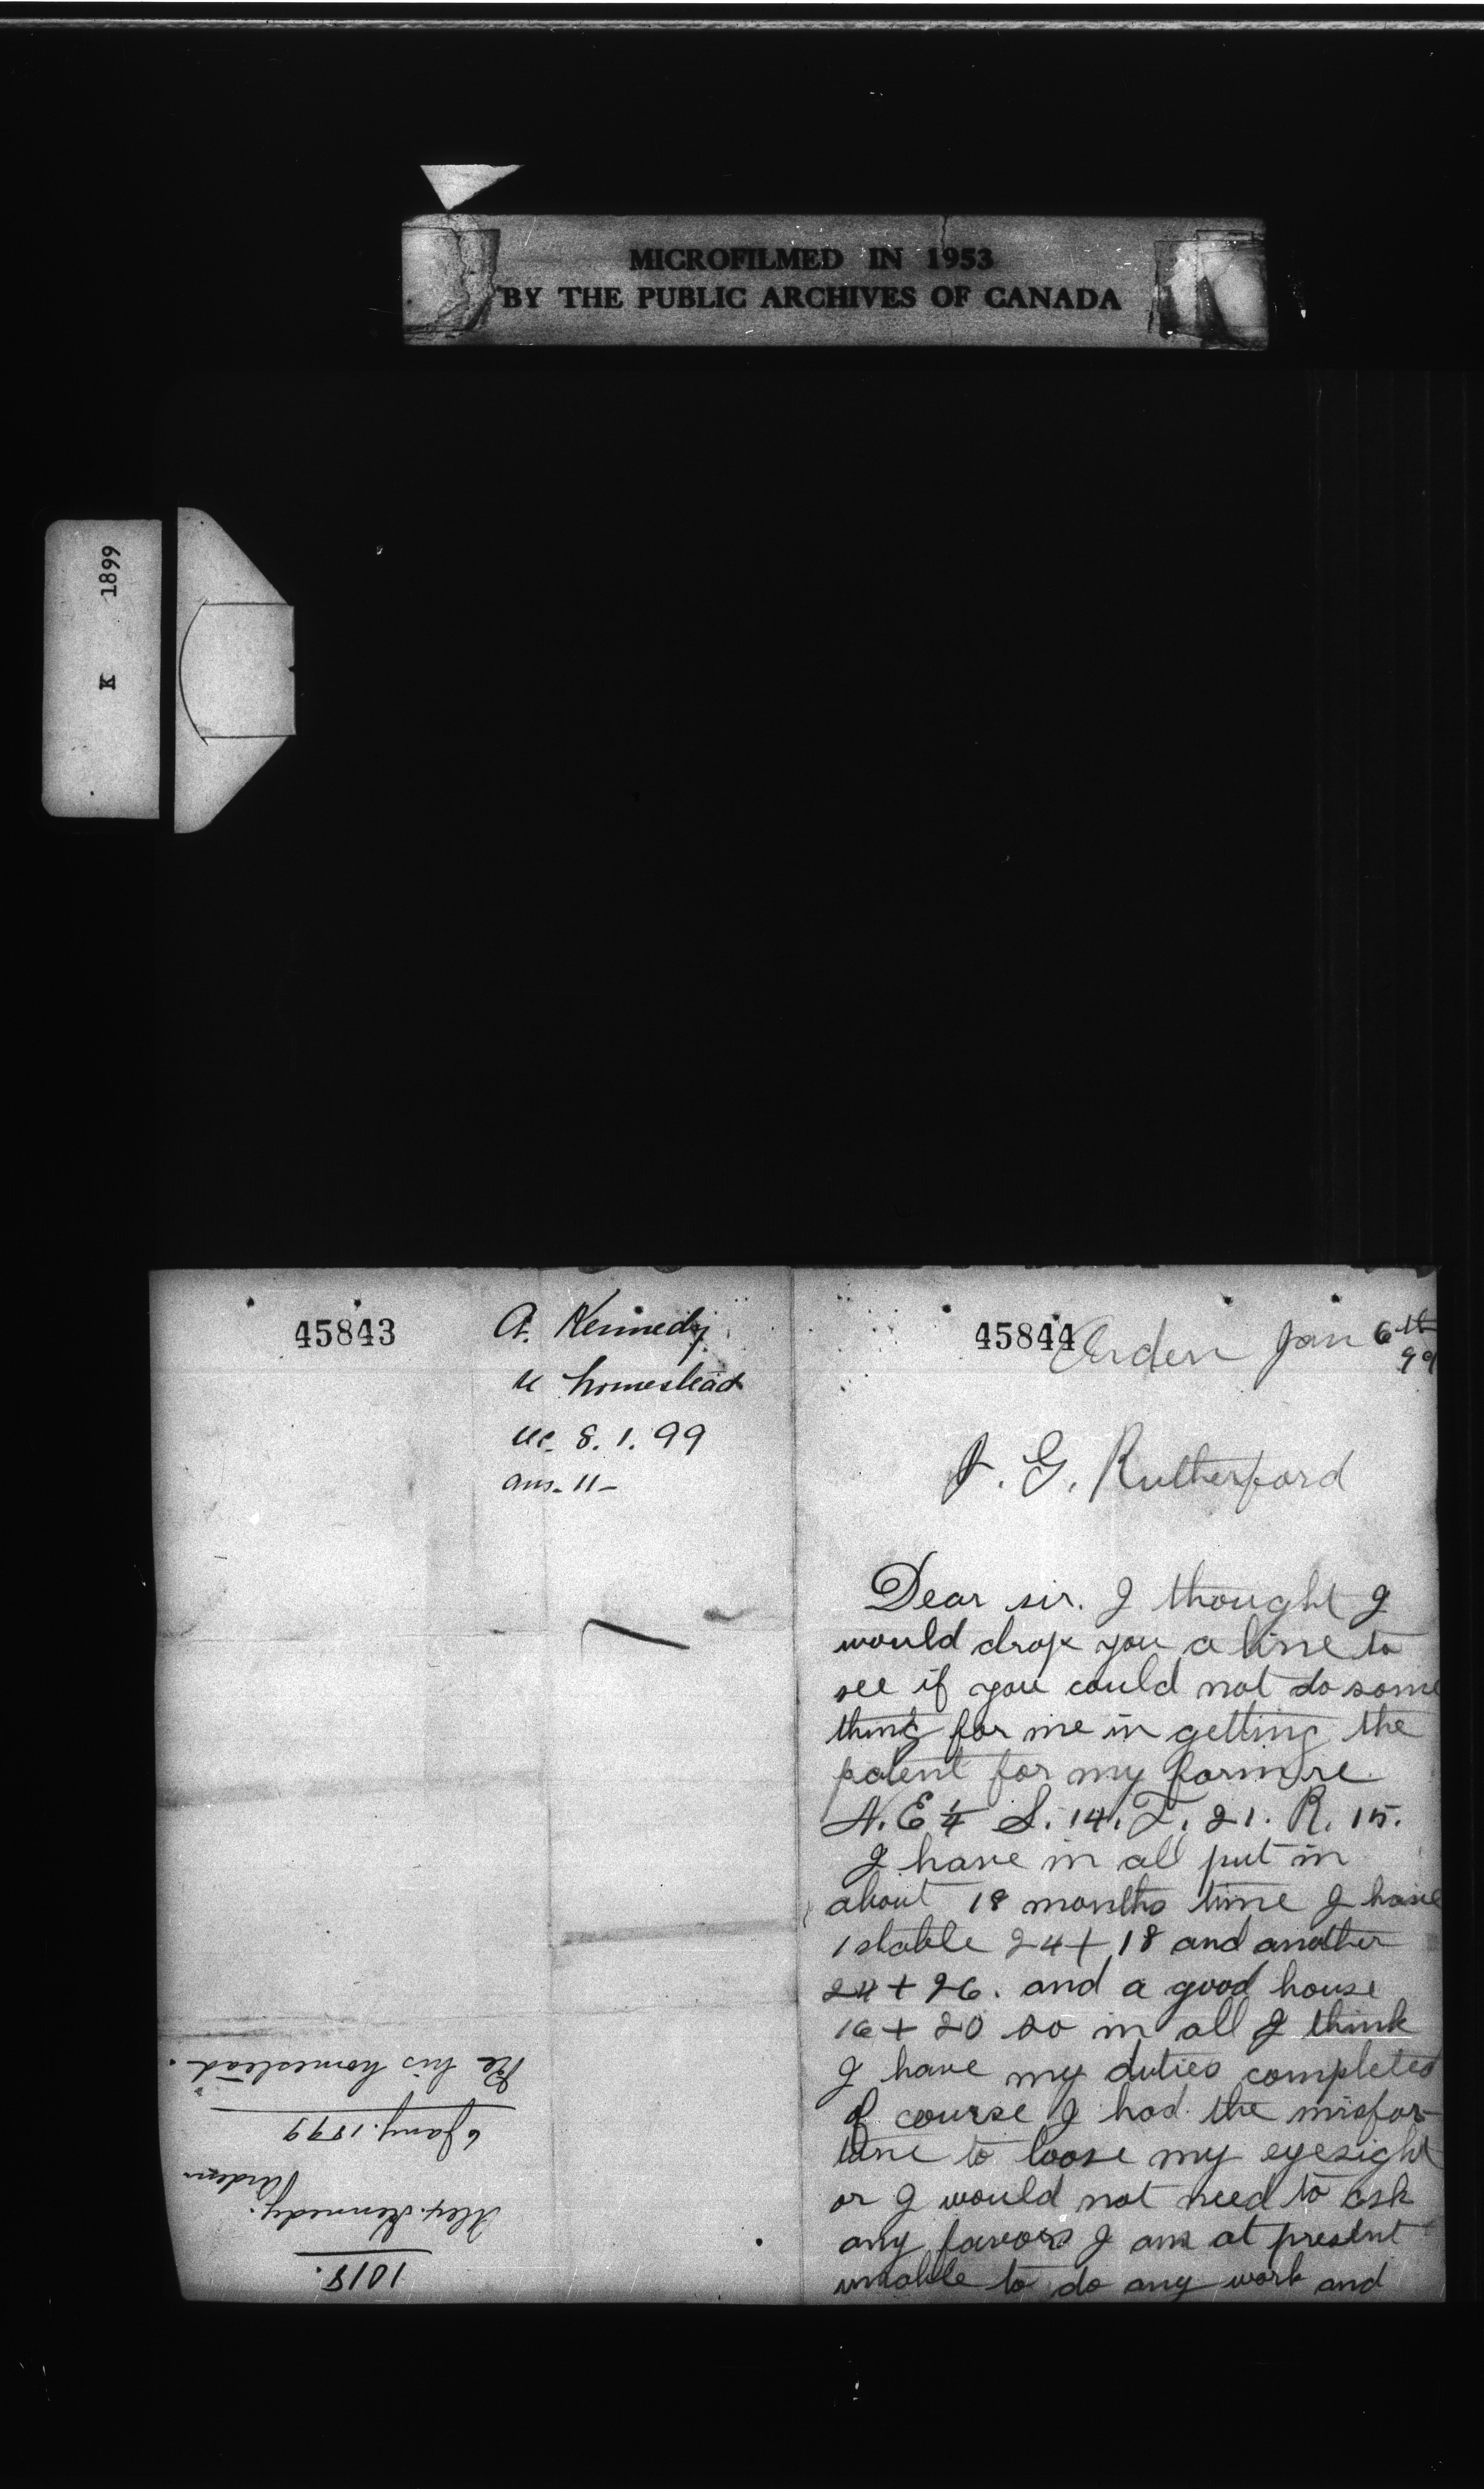 MICROFILMED IN 1953
BY THE PUBLIC ARCHIVES OF CANADA
K 1899
45843
A. Kennedy
re homestead
rec. 8. 1. 99
ans. 11-
1018.
Alex. Kennedy.
Arden
6 Jany. 1899
Re his homestead.
45844
Arden Jan 6th
99
J. G. Rutherford
Dear sir. I thought I
would drop you a line to
see if you could not do some
thing for me in getting the
patent for my farm re
N. E ¼ S. 14. T. 21. R. 15.
I have in all put in
about 18 months time I have
1 stable 24 + 18 and another
24 + 26. and a good house
16 + 20 so in all I think
I have my duties completed
of course I had the misfor-
tune to loose my eyesight
or I would not need to ask
any favors I am at present
unable to do any work and